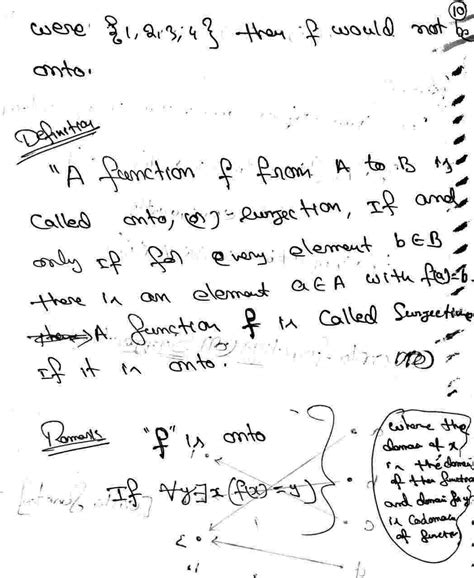 10
were {1, 2, 3, 4} then f would not be
onto.
Definition
"A function f from A to B is
called onto, or surjection, If and
only If for every element b∈B
there is an element a∈A with f(a)=b.
A function f is called Surjective
If it is onto.
Remarks "f" is onto
If ∀y∃x(f(x)=y)
where the
domain of x
is the domain
of the function
and domain for y
is Codomain
of function
3